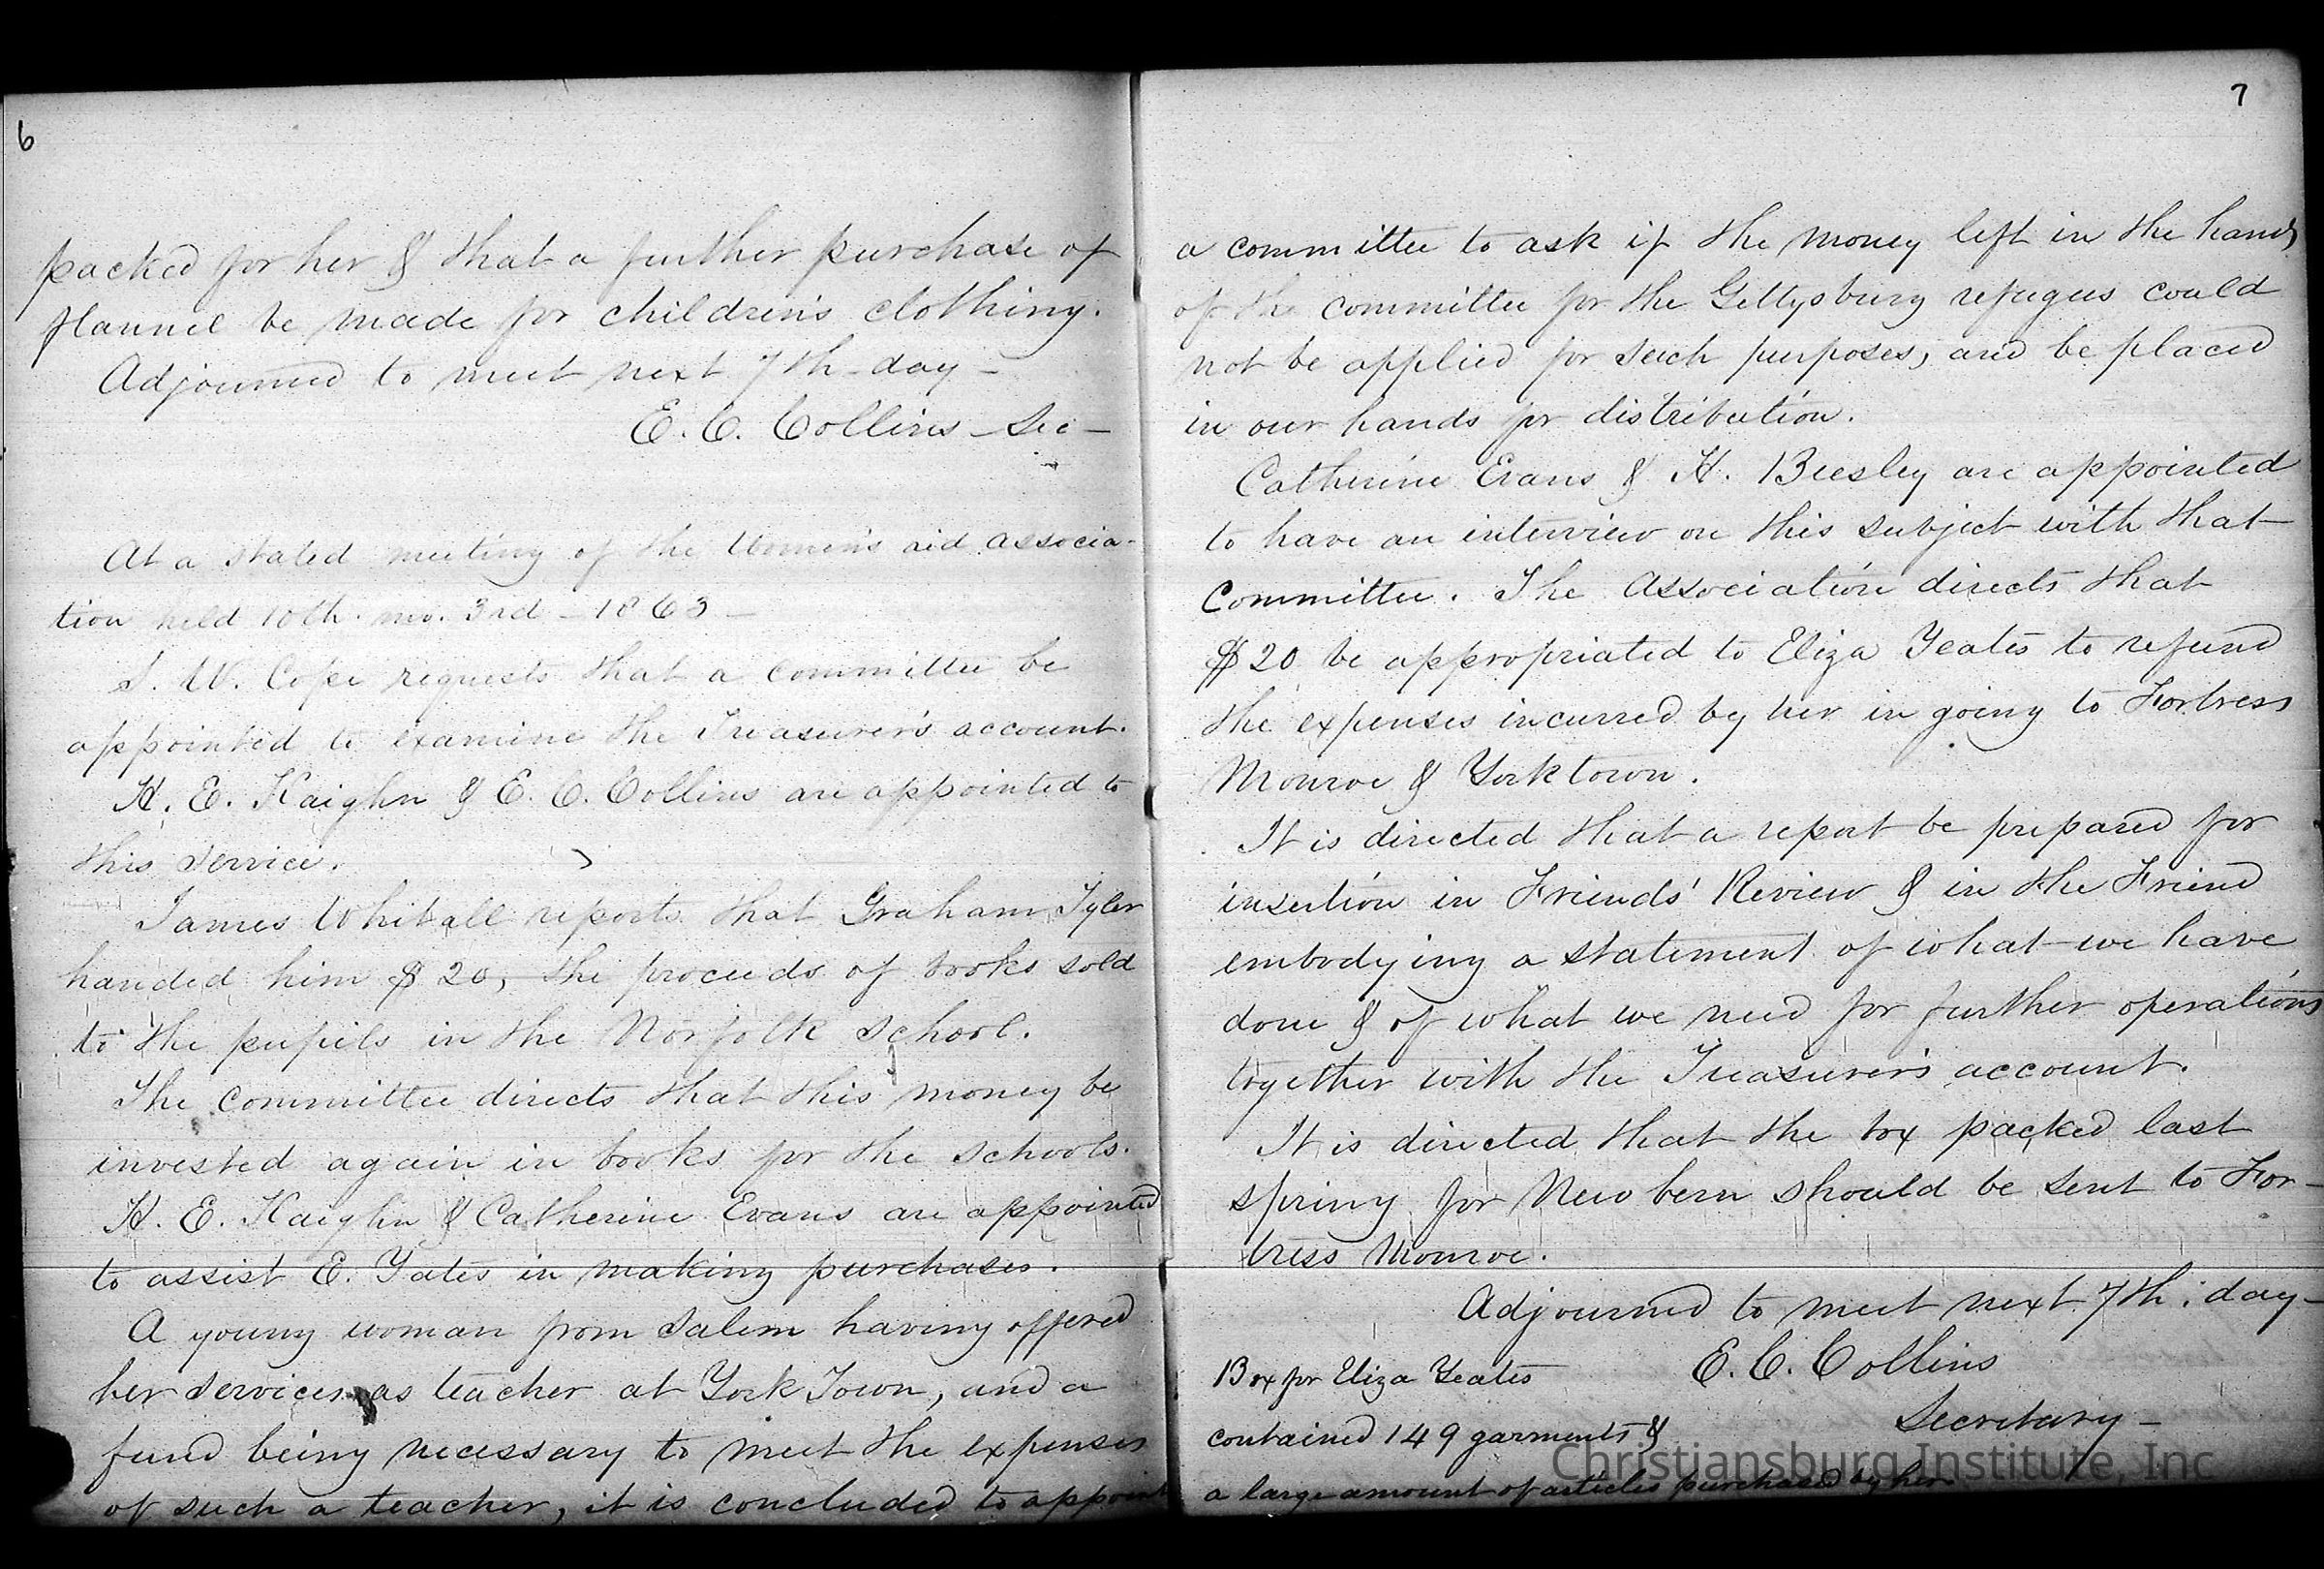 6
packed for her & that a further purchase of
flannel be made for children's clothing.
Adjourned to meet next 7th-day-
E. C. Collins - Sec -
At a stated meeting of the Women's aid associa-
tion held 10th. mo. 3rd - 1863 -
S. W. Cope requests that a committee be
appointed to examine the Treasurer's account.
H. E. Kaighn & E. C. Collins are appointed to
this service.
James Whitall reports that Graham Tyler
handed him $20, the proceeds of books sold
to the pupils in the Norfolk school.
The committee directs that this money be
invested again in books for the schools.
H. E. Kaighn & Catherine Evans are appointed
to assist E. Yates in making purchases.
A young woman from Salem having offered
her services as teacher at York Town, and a
fund being necessary to meet the expenses
of such a teacher, it is concluded to appoint
7
a committee to ask if the money left in the hands
of the committee for the Gettysburg refugees could
not be applied for such purposes, and be placed
in our hands for distribution.
Catherine Evans & H. Beesley are appointed
to have an interview on this subject with that
Committee. The Association directs that
$20 be appropriated to Eliza Yeates to refund
the expenses incurred by her in going to Fortress
Monroe & Yorktown.
It is directed that a report be prepared for
insertion in Friends' Review & in the Friend
embodying a statement of what we have
done & of what we need for further operations
together with the Treasurer's account.
It is directed that the box packed last
spring for New bern should be sent to For-
tress Monroe.
Adjourned to meet next 7th. day-
E. C. Collins
Secretary -
Box for Eliza Yeates
contained 149 garments &
a large amount of articles purchased by her.
Christiansburg Institute, Inc